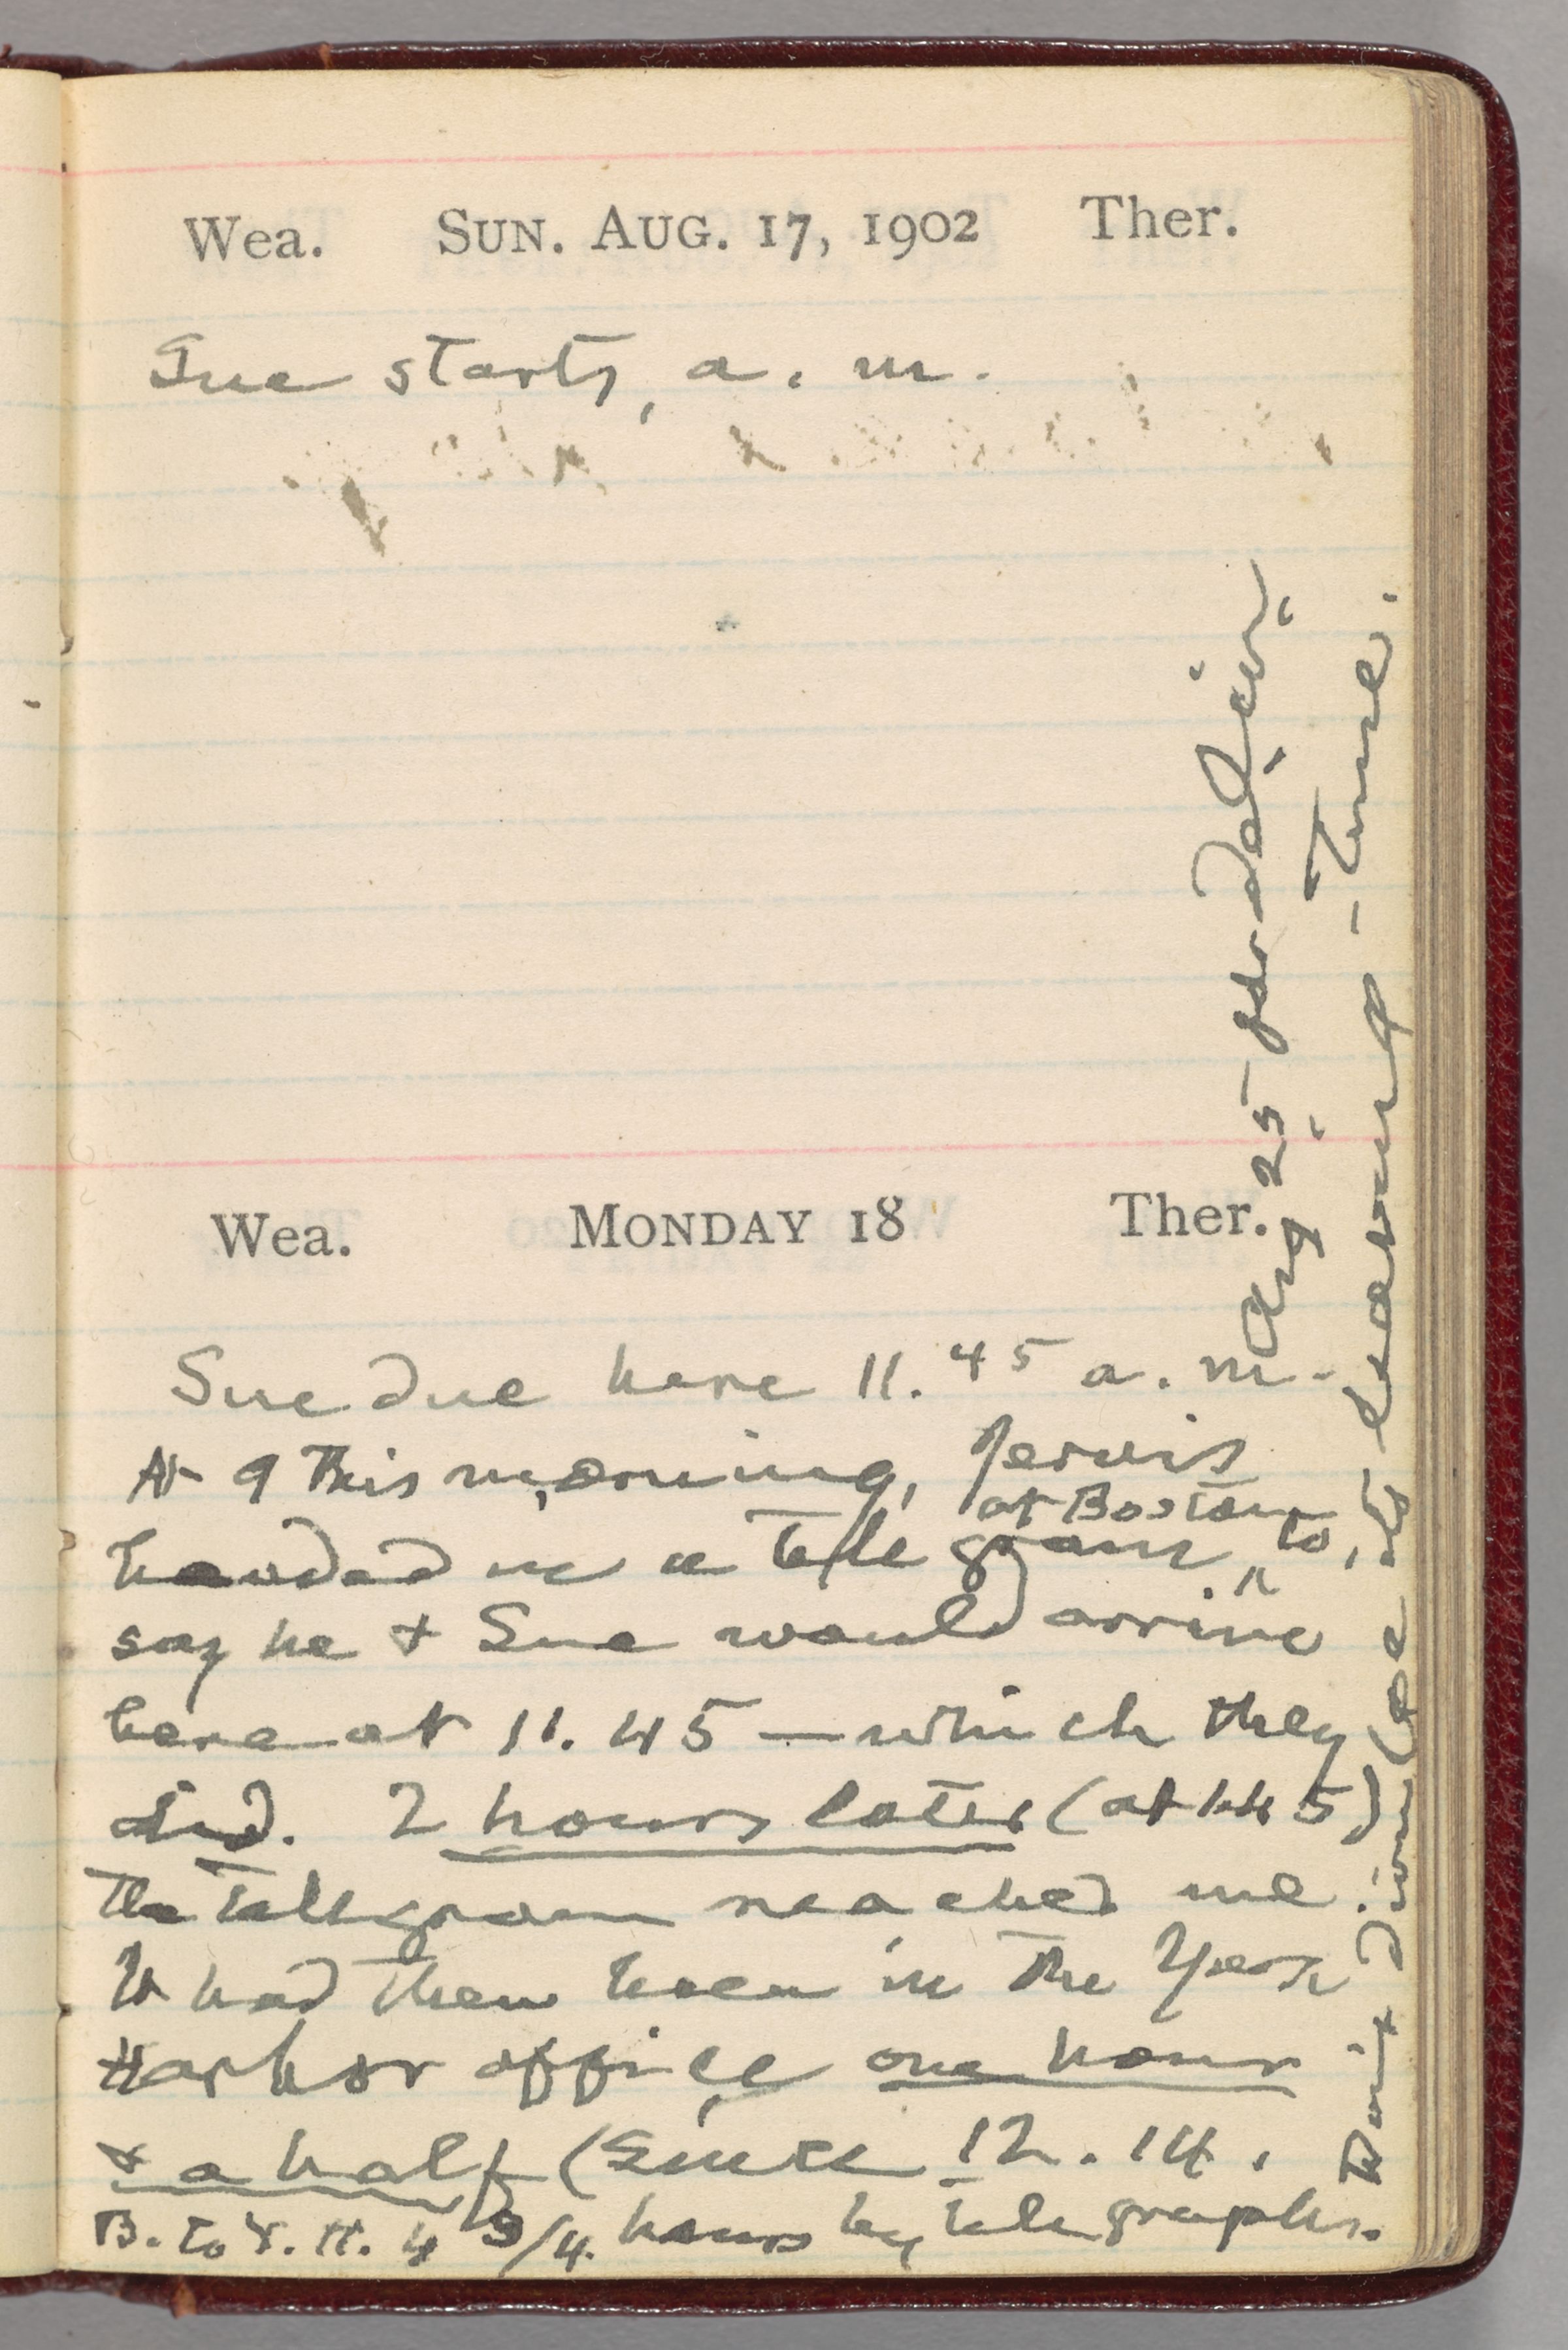 Wea. SUN. AUG. 17, 1902 Ther.
Sue starts, a. m.
Wea. MONDAY 18 Ther.
Sue due here 11.45 a. m.
At 9 this morning, Jervis
at Boston
handed in a telegram ^ to
say he & Sue would arrive
here at 11.45 — which they
did. 2 hours later (at 1.45)
the telegram reached me.
It had then been in the York
Harbor office one hour
& a half (since 12.14.
B. to Y. H. 4 3/4 hours by telegraph.
Aug. 25 for
(be its leaving-time.